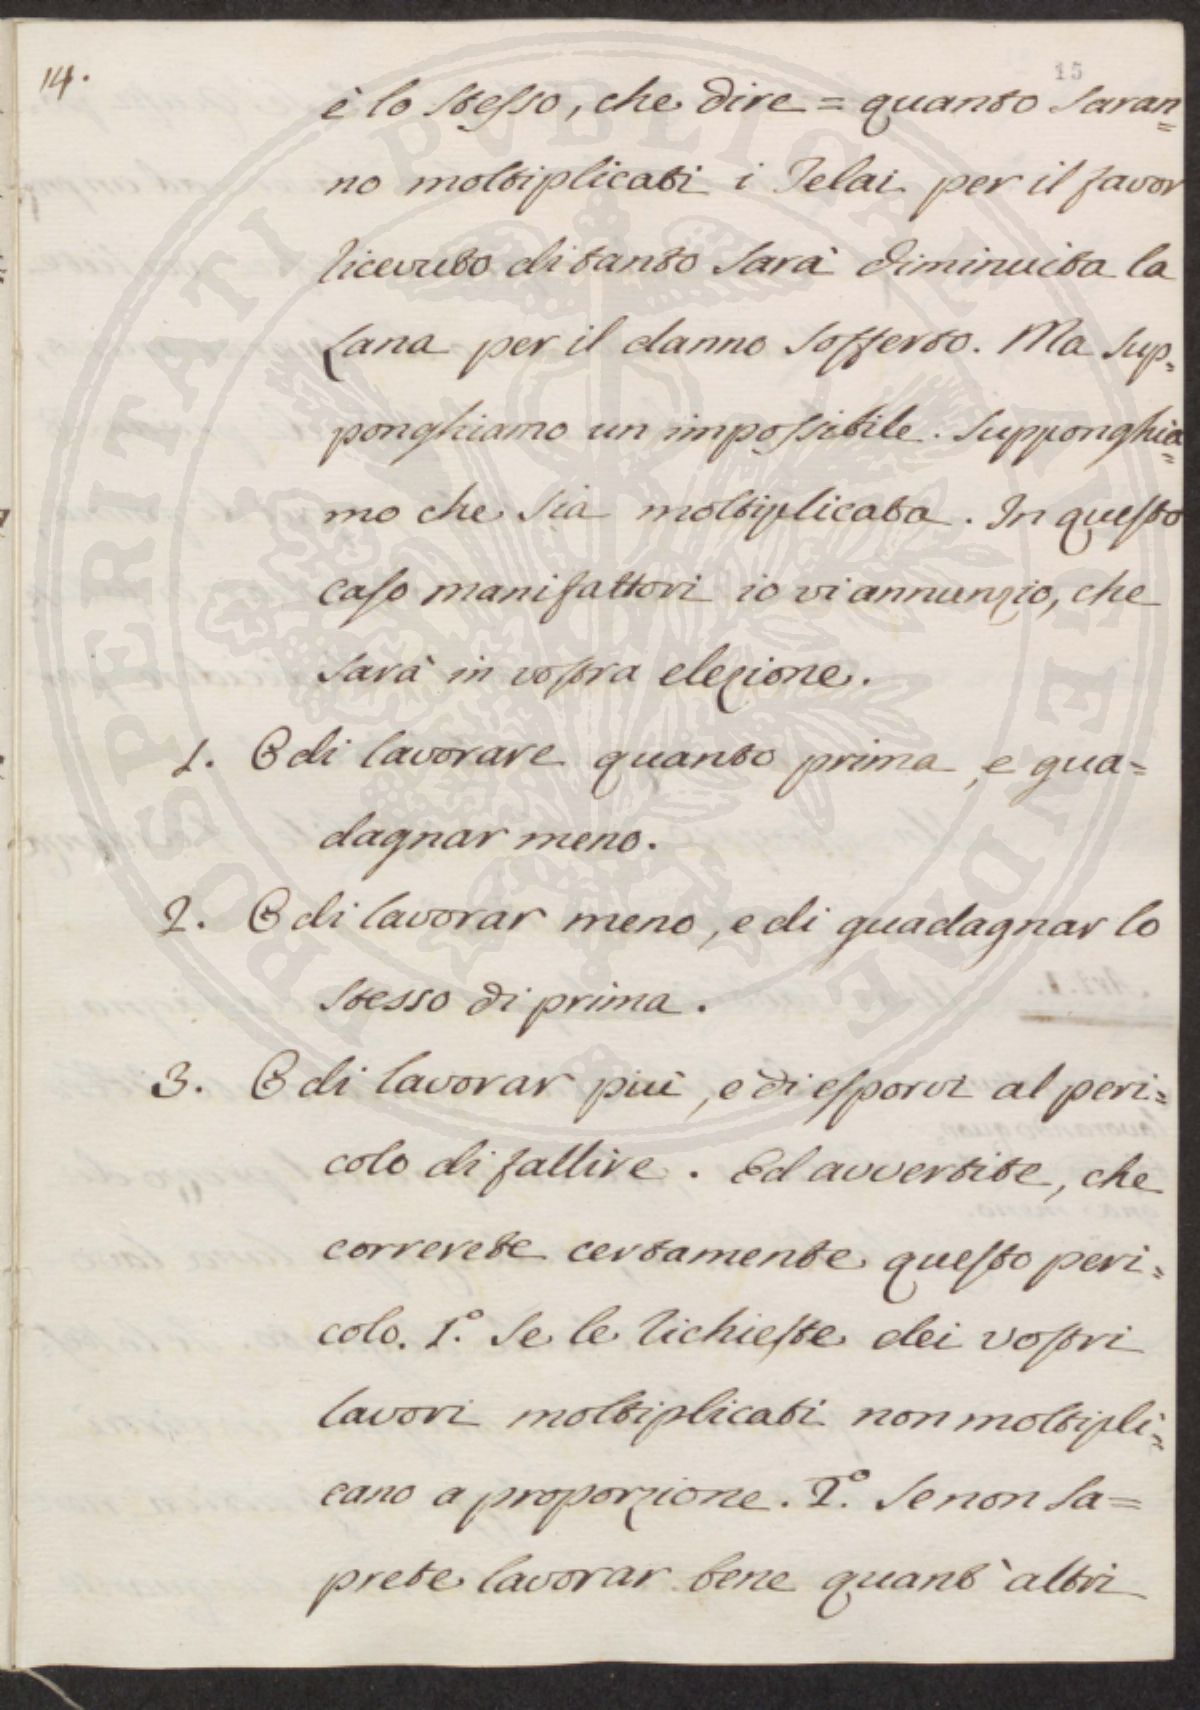 14.
15
è lo stesso, che dire = quanto saran=
no moltiplicati i Telai per il favor
ricevuto di tanto sarà diminuita la
Lana per il danno sofferto. Ma sup=
ponghiamo un impossibile. Supponghia=
mo che sia moltiplicata. In questo
caso manifattori io vi annunzio, che
sarà in vostra elezione.
1. O di lavorare quanto prima, e gua=
dagnar meno.
2. O di lavorar meno, e di guadagnar lo
stesso di prima.
3. O di lavorar più, e di esporvi al peri=
colo di fallire. Ed avvertite, che
correrete certamente questo peri=
colo. 1.° Se le richieste dei vostri
lavori moltiplicati non moltipli=
cano a proporzione. 2.° Se non sa=
prete lavorar bene quant' altri
PROSPERITATI PUBLICAE AUGENDAE